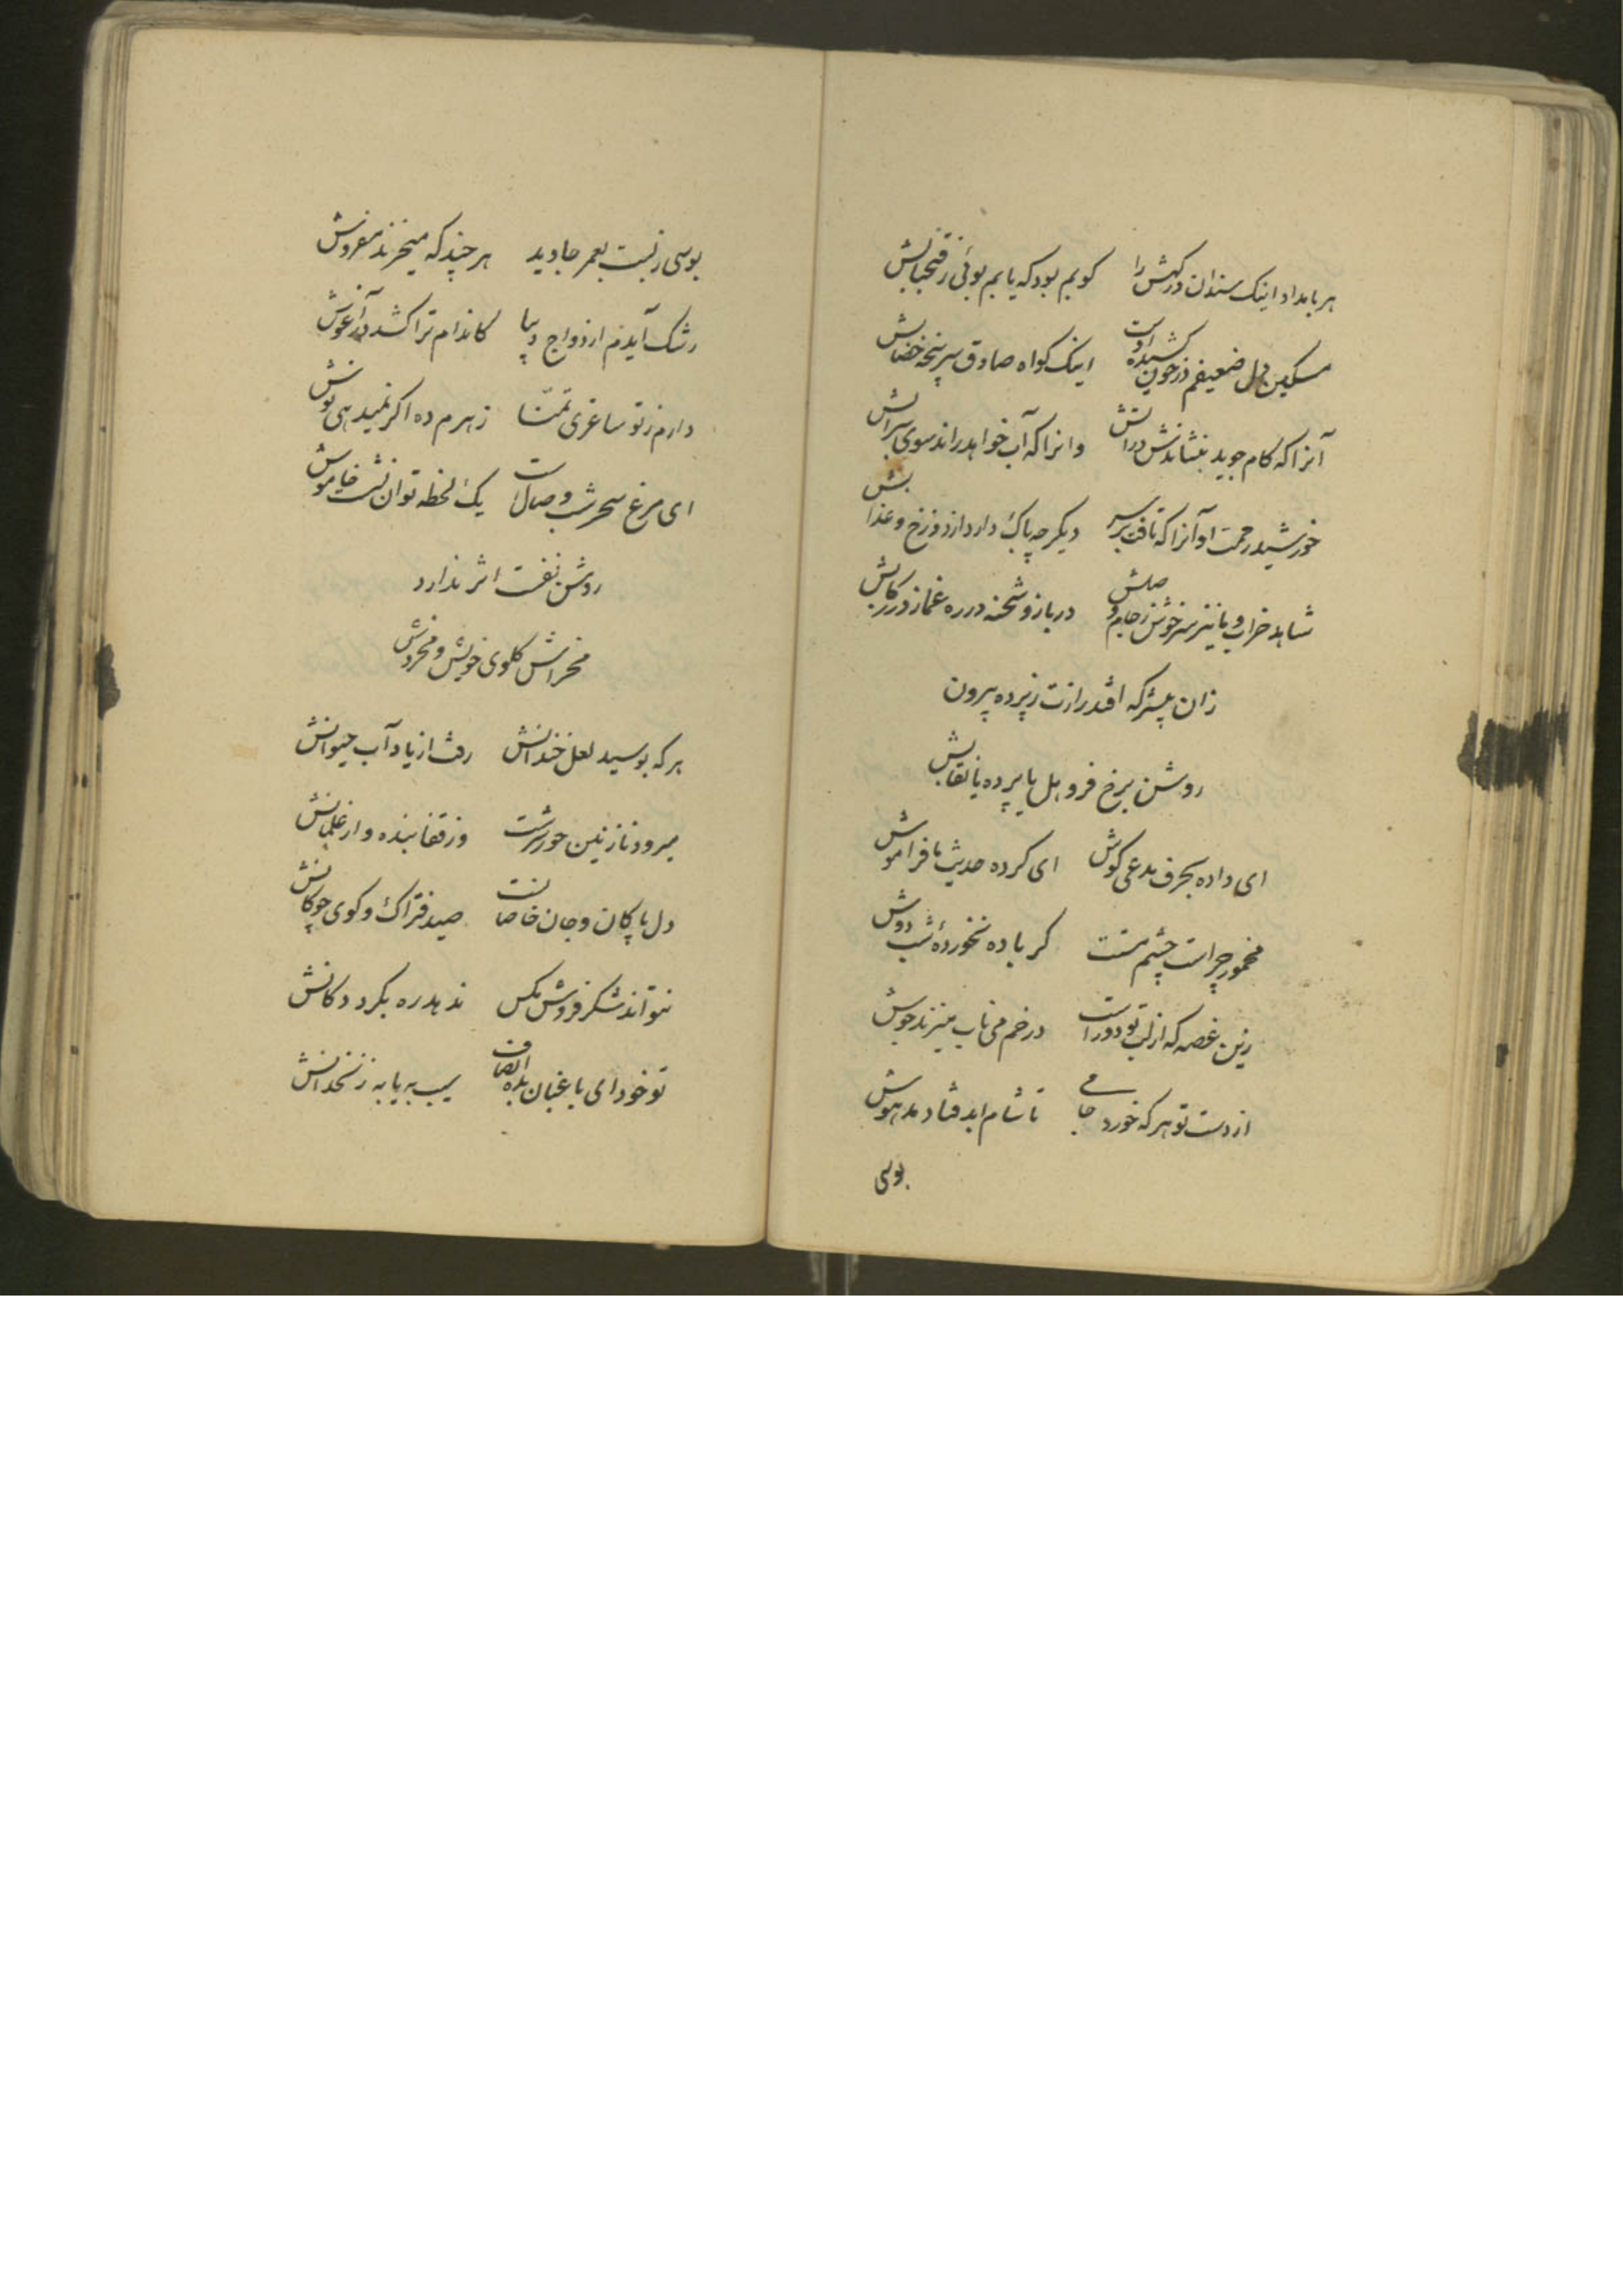 هر بامداد اینک سندان درکهش را کویم بود که یابم بوئی ز فتح بابش
مسکین دل ضعیفم در خون کشیده اوست اینک کواه صادق سرپنجه خضابش
آنرا که کام جوید بنشاندش در آتش وانرا که آب خواهد راند سوی سرابش
خورشید رحمت او آنرا که تافت بر سر دیکر چه باک دارد از دوزخ و عذابش
شاهد خراب و ما نیز سرخوش ز جام وصلش در باز و شحنه در ره غماز در رکابش
زان پیشتر که افتد رازت ز پرده بیرون
روشن برخ فرو هل یا پرده یا نقابش
ای داده بحرف مدعی کوش ای کرده حدیث ما فراموش
مخمور چراست چشم مستت کر باده نخوردهٔ شب دوش
زین غصه که از لب تو دور است در خم می ناب میزند جوش
از دست تو هر که خورد جامی تا شام ابد فتاد مدهوش
بوسی
بوسی ز لبت بعمر جاوید هر چند که میخرند مفروش
رشک آیدم از دواج دیبا کاندام ترا کشد در آغوش
دارم ز تو ساغری تمنا زهرم ده اکر نمیدهی نوش
ای مرغ سحر شب وصال است یک لحظه توان نشست خاموش
روشن نفست اثر ندارد
مخراش کلوی خویش و مخروش
هر که بوسید لعل خندانش رفت از یاد آب حیوانش
میرود نازنین حور سرشت وز قفا بنده وار غلمانش
دل پاکان و جان خاصانت صید فتراک و کوی چوکانش
نتواند شکر فروش مکس ندهد ره بکرد دکانش
تو خود ای باغبان بده انصاف سیب به یا به زنخدانش